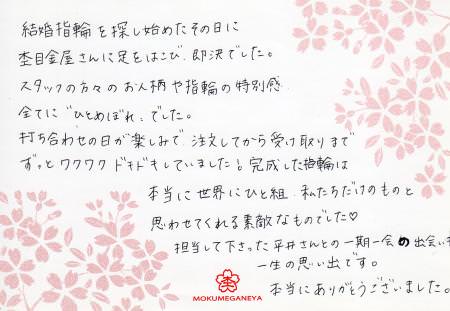 結婚指輪を探し始めたその日に
杢目金屋さんに足をはこび、即決でした。
スタッフの方々のお人柄や指輪の特別感
全てに"ひとめぼれ"でした。
打ち合わせの日が楽しみで、注文してから受け取りまで
ずっとワクワクドキドキしていました!完成した指輪は
本当に世界にひと組、私たちだけのものと
思わせてくれる素敵なものでした♡
担当して下さった平井さんとの一期一会の出会いも
一生の思い出です。
本当にありがとうございました。
MOKUMEGANEYA